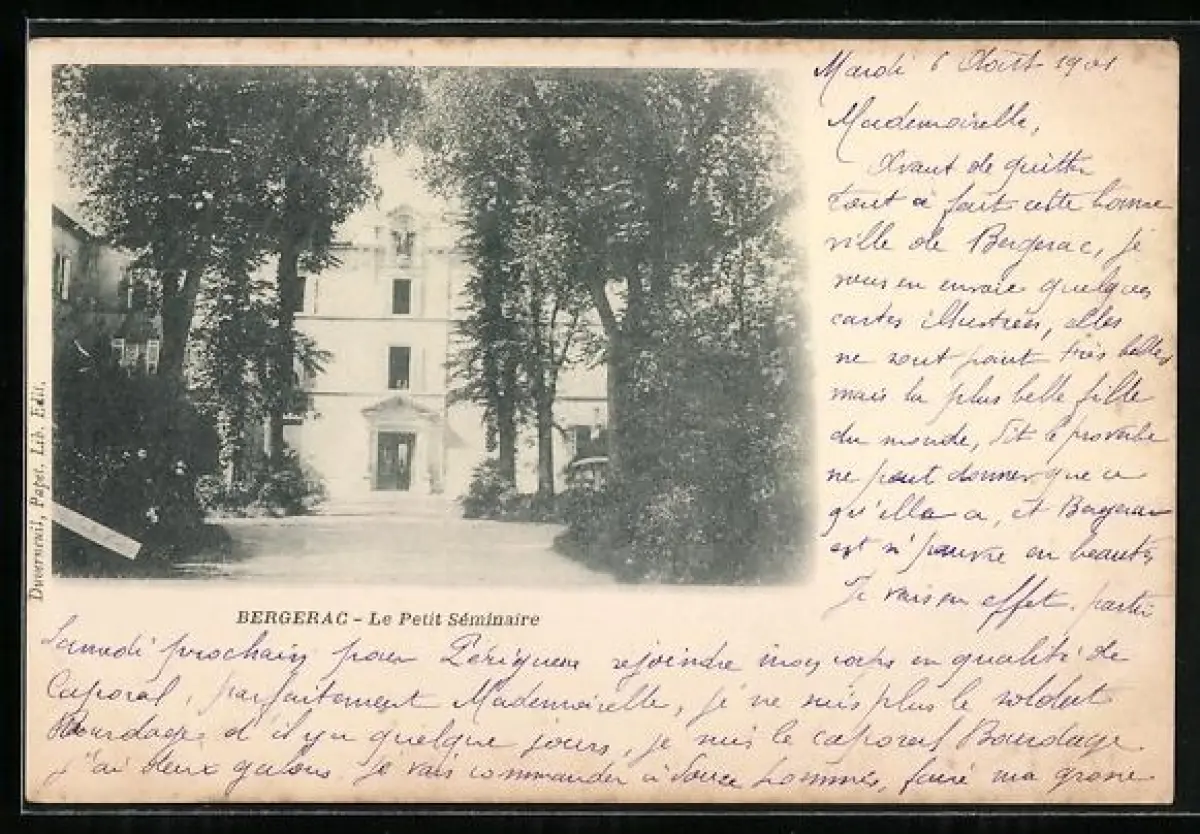 Mardi 6 Août 1901
Mademoiselle,
Avant de quitter
tout à fait cette bonne
ville de Bergerac, je
vous en envoie quelques
cartes illustrées, elles
ne sont point très belles
mais la plus belle fille
du monde, dit le proverbe
ne peut donner que ce
qu'elle a, et Bergerac
est si pauvre en beautés
Je vais en effet partir
Samedi prochain pour Périgueux rejoindre mon corps en qualité de
Caporal, parfaitement Mademoiselle, je ne suis plus le soldat
Bourdages d'il y a quelque jours, je suis le caporal
j'ai deux galons je vais commander à douze hommes, faire ma grosse
BERGERAC - Le Petit Séminaire
Duverneuil, Papet. Lib. Edit.